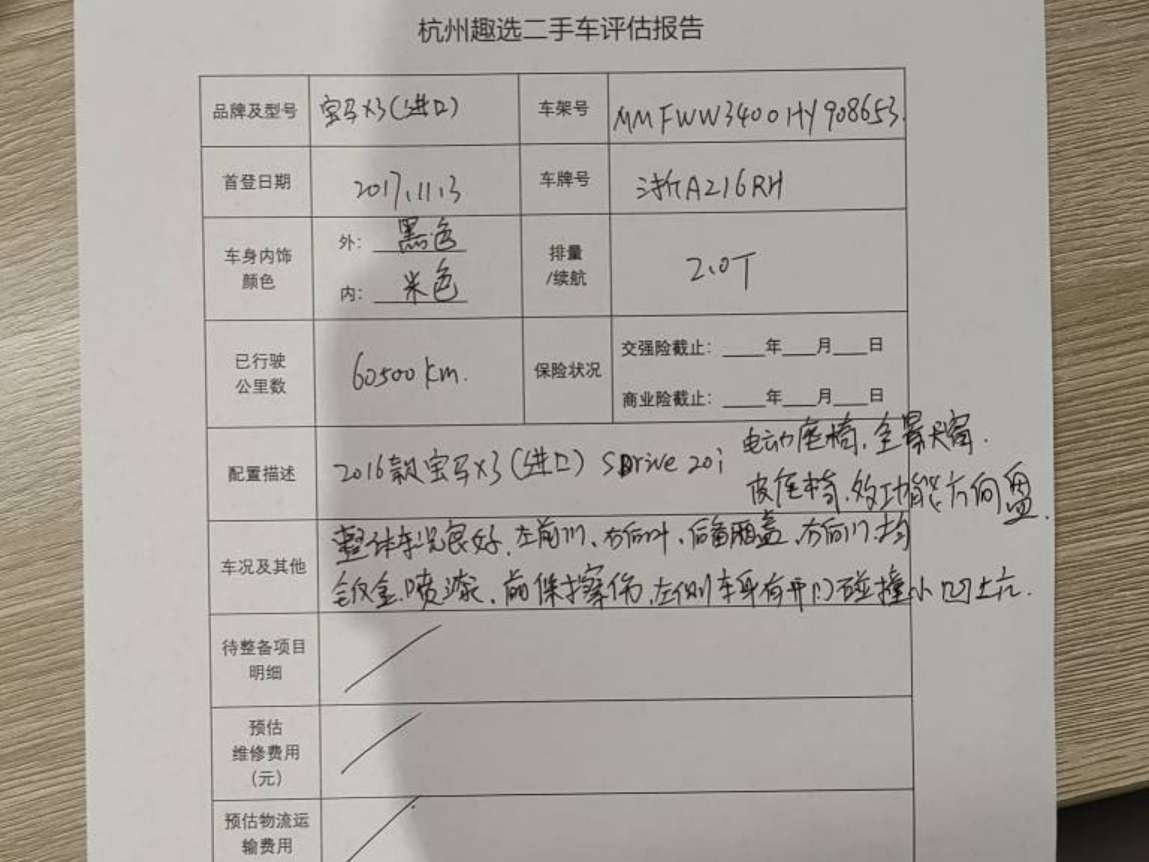 杭州趣选二手车评估报告
品牌及型号 宝马X3(进口) 车架号 MMFWW3400HY908653.
首登日期 2017.11.3 车牌号 浙A216RH
车身内饰
颜色
外: 黑色
内: 米色
排量
/续航
2.0T
已行驶
公里数
60500 km.
保险状况
交强险截止: 年 月 日
商业险截止: 年 月 日
配置描述 2016款宝马X3(进口) SDrive 20i 电动座椅.全景天窗.
皮座椅.多功能方向盘.
车况及其他
整体车况良好.左前门、右后叶、后备厢盖.右前门.均
钣金.喷漆、前保擦伤.左侧车身有开门碰撞小凹坑.
待整备项目
明细
预估
维修费用
(元)
预估物流运
输费用